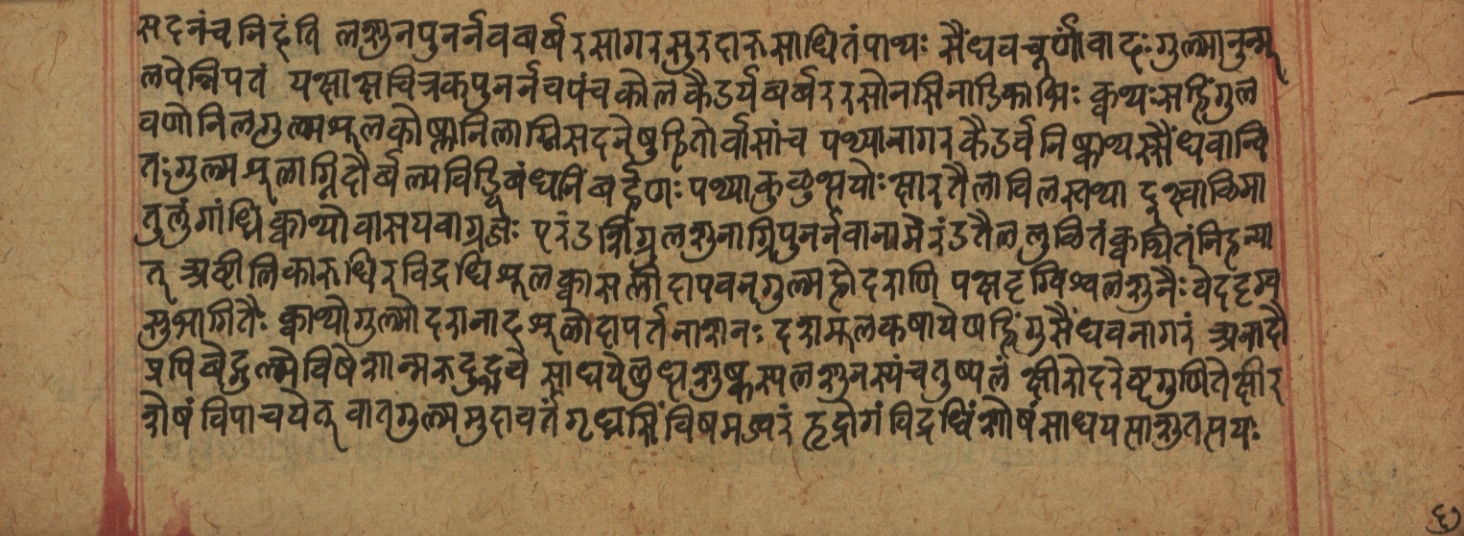 सदनंच निहंति लशुनपुनर्नवबर्बरसागरसुरदारुसाधितंपाथः सैंधवचूर्णावादः गुल्मानुन्मू
लपेन्निपतं यक्षाक्षचित्रकपुनर्नवपंचकोलकैडर्यबर्बररसोनसिनाडिकाभिः क्वथःसहिंगुल
वणोनिलगुल्मशूलकोष्णानिलाग्निसदनेषुहितोर्वासांच पथ्यानागरकैडर्यनिष्क्वाथ्यस्सैंधवान्वि
तः गुल्मशूलाग्निदौर्बल्यविड्विबंधनिबर्हणः पथ्याकुळुभयोः क्षारतैलाविलस्तथा दुःखाळिमा
तुलुंगांघ्रिक्वाथोवासयवाग्रजः एरंडशिग्रुलशुनाग्निपुनर्नवानामैरंडतैललुळितंक्वथितंनिहन्या
त् अष्टीलिकारुधिरविद्रधिशूलक्वासप्लीहापवनगुल्महोदराणि पक्षदृग्विश्वलशुनैः वेददृग्व
सुभागितैः क्वाथोगुल्मोदरानाहशूलोदापर्तनाशनः दशमूलकषायेणहिंगुसैंधवनागरं अनादौ
प्रपिबेद्गुल्मेविषेशान्मरुदुद्भवे साधयेलुध्दशुष्कस्यलशुनस्यंचतुष्पलं क्षीरोदरेष्टगुणितेक्षीर
शेषंविपाचयेत् वातगुल्ममुदावर्तंगृध्रसिंविषमज्वरं हृद्रोगंविद्रधिंशोषंसाधयसाशुतसयः